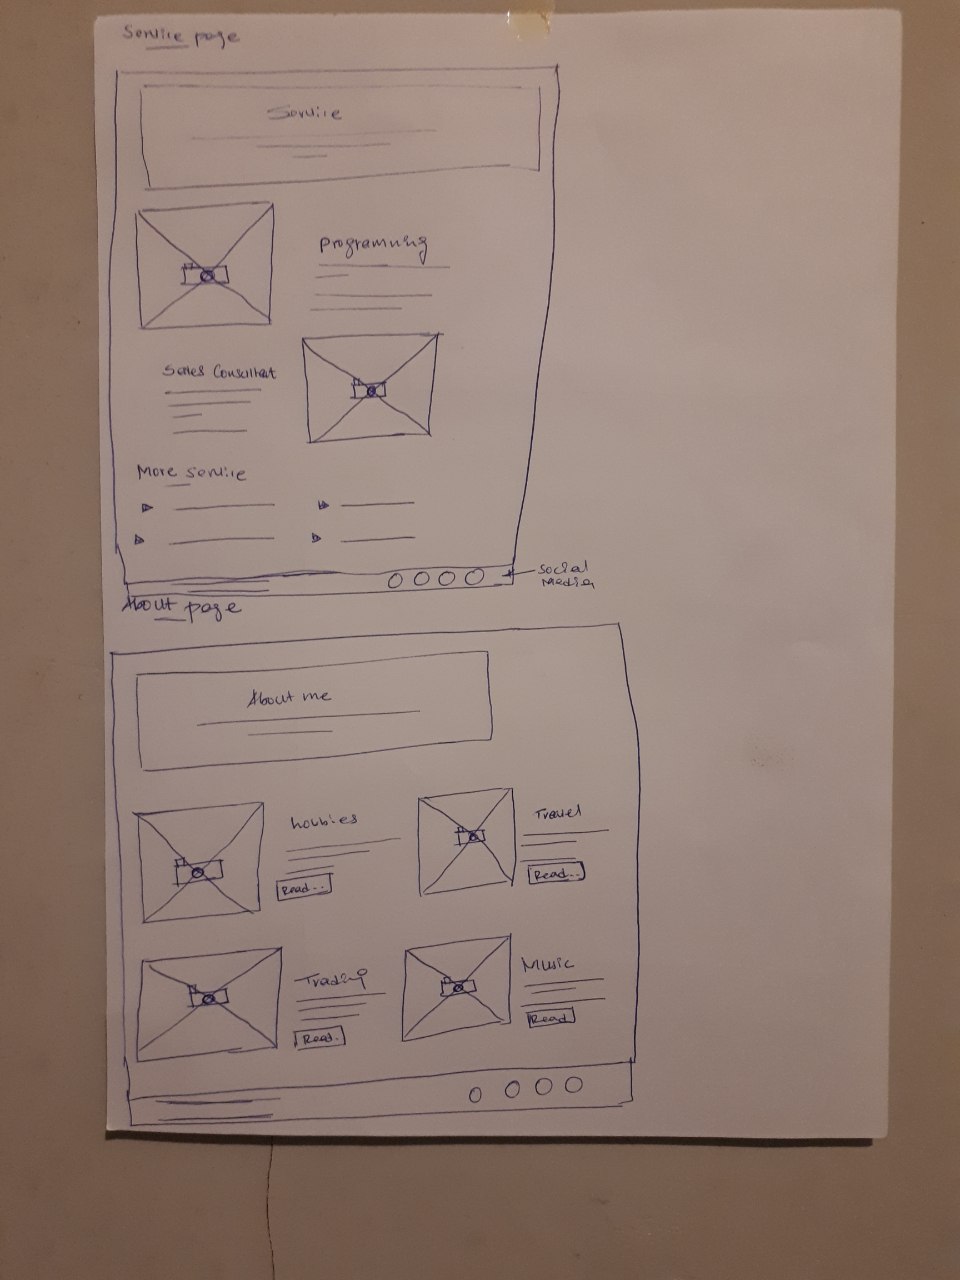 Service page
Service
Programming
Sales Consultant
More service
Social
Media
About page
About me
hobbies
Travel
Read...
Read...
Trading
Music
Read..
Read